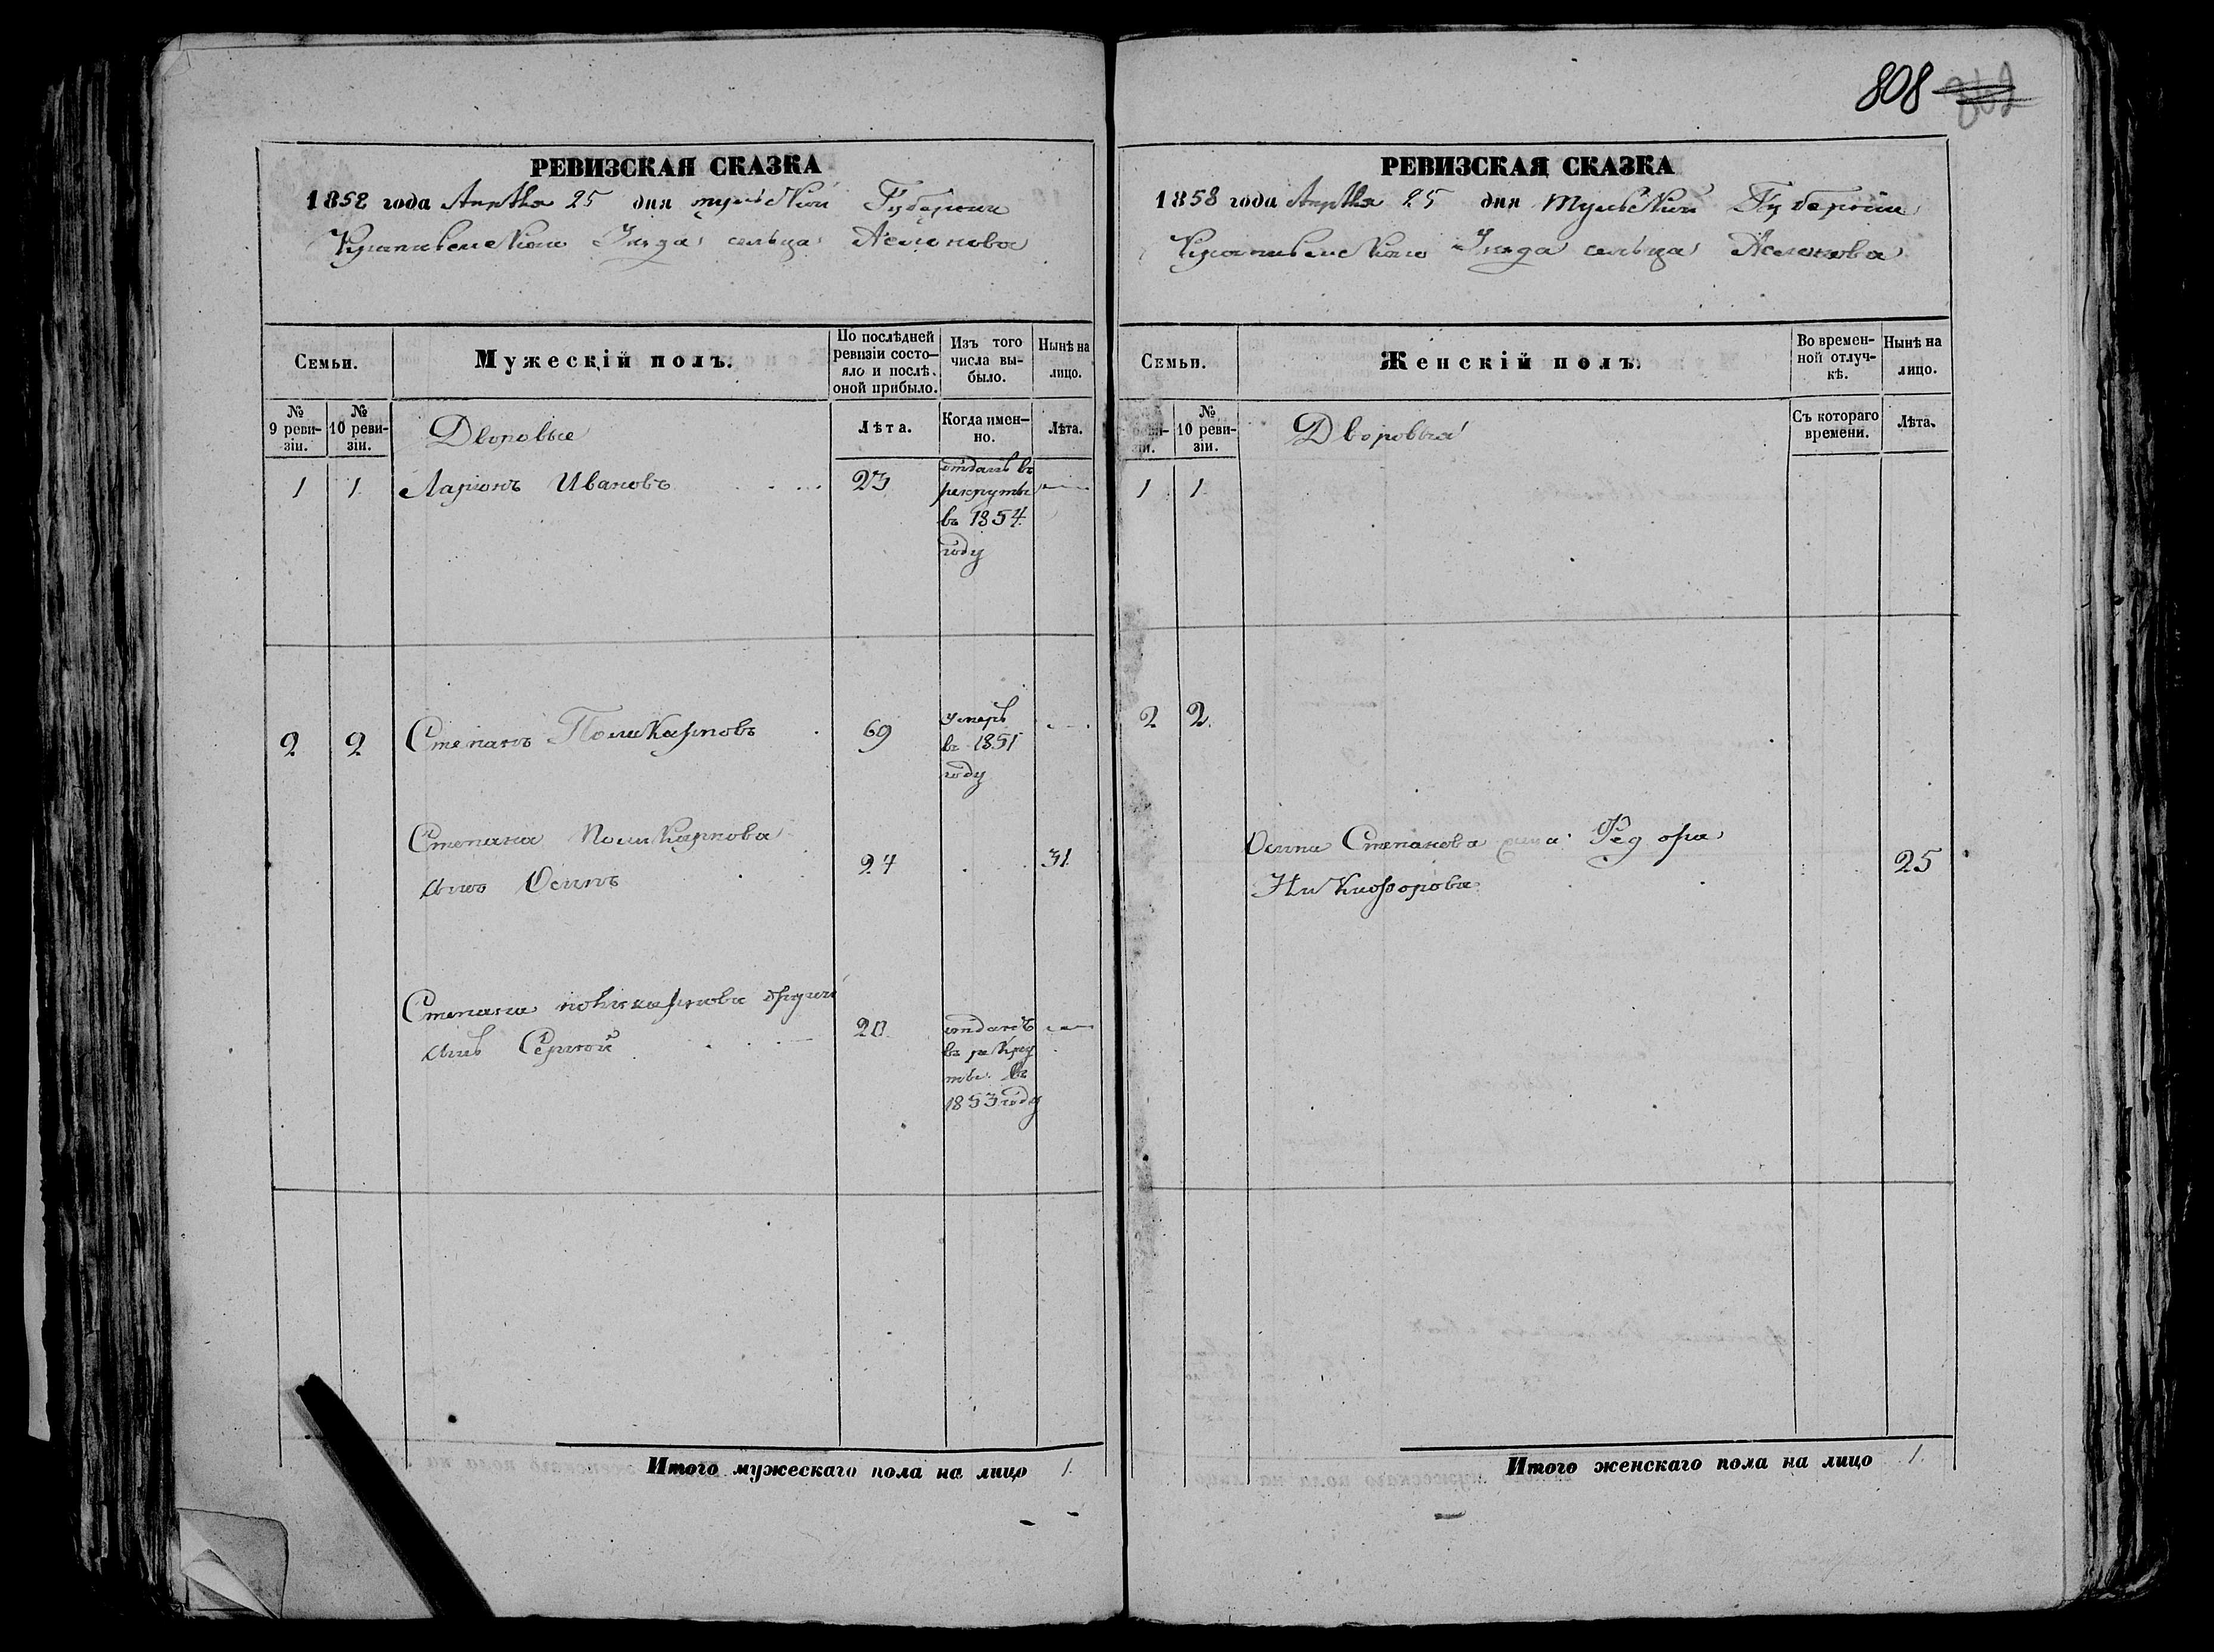 808
РЕВИЗСКАЯ СКАЗКА
1858 года Апрѣля 25 дня Тульской Губернии
Крапивенскаго Уезда сельца
Семьи.
Мужескій полъ.
По послѣдней ревизіи состо-
яло и послѣ.
оной прибыло.
Изъ того
числа вы-
было.
Нынѣ на
лицо.
№
9 реви-
зіи.
№
10 реви-
зіи.
Дворовые
Лѣта.
Когда имен-
но.
Лѣта.
1 1 Ларионъ Ивановъ 23
отданъ въ
рекруты
въ 1854
году
2 2 Степанъ Поликарповъ 69
умеръ
въ 1851
году
Степана Поликарпова
сынъ Осипъ 24 31
Степана поликарпова другой
сынъ Сергей 20
отданъ
въ рекру
ты въ
1853 году
Итого мужескаго пола на лицо 1.
РЕВИЗСКАЯ СКАЗКА
1858 года Апрѣля 25 дня Тульской Губернии
Крапивенскаго Уезда сельца
Семьи.
Женскій полъ.
Во времен-
ной отлуч-
кѣ.
Нынѣ на
лицо.
№
10 реви-
зіи.
Дворовыя
Съ котораго
времени.
Лѣта.
1 1
2 2.
Осипа Степанова жена Федора
Никифорова 25
Итого женскаго пола на лицо 1.